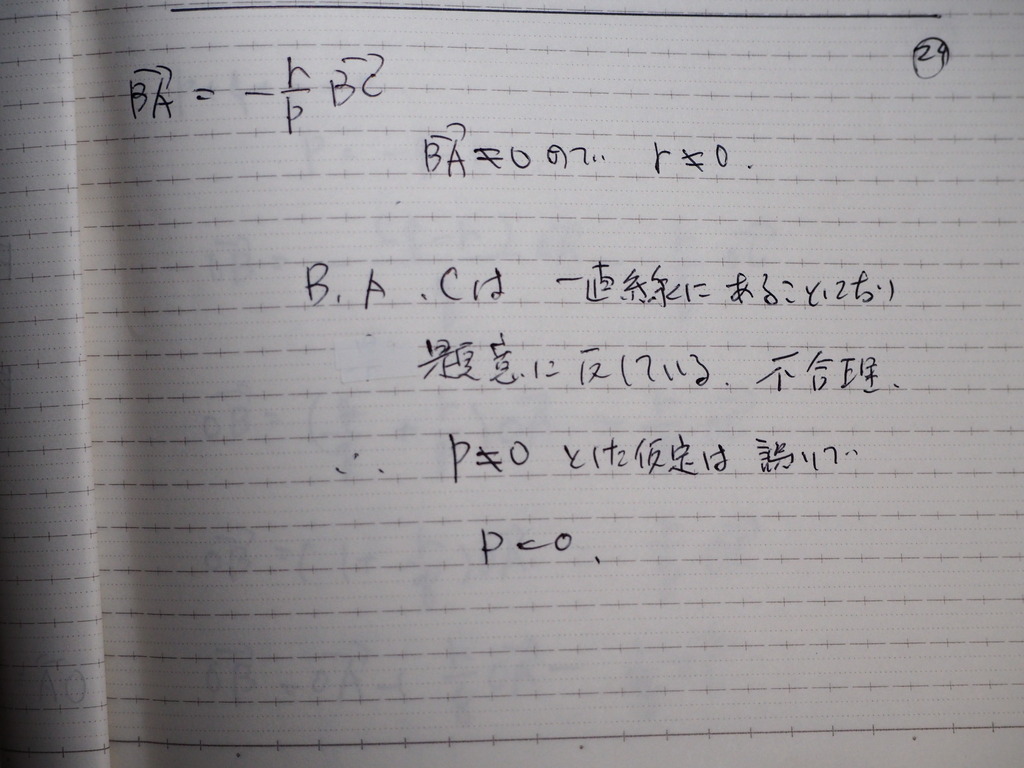 ㉙
$\overrightarrow{BA} = -\frac{r}{p} \overrightarrow{BC}$
$\overrightarrow{BA} \neq 0$ ので r ≠ 0.
B, A, Cは 一直線にあることになり
題意に反している. 不合理.
∴ p≠0 とした仮定は 誤りで
p = 0.